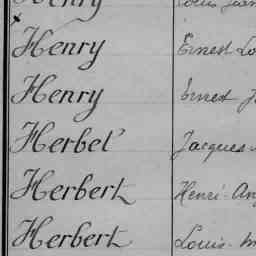 Henry
Henry Ernest
Henry Ernest
Herbel Jacques
Herbert Henri
Herbert Louis